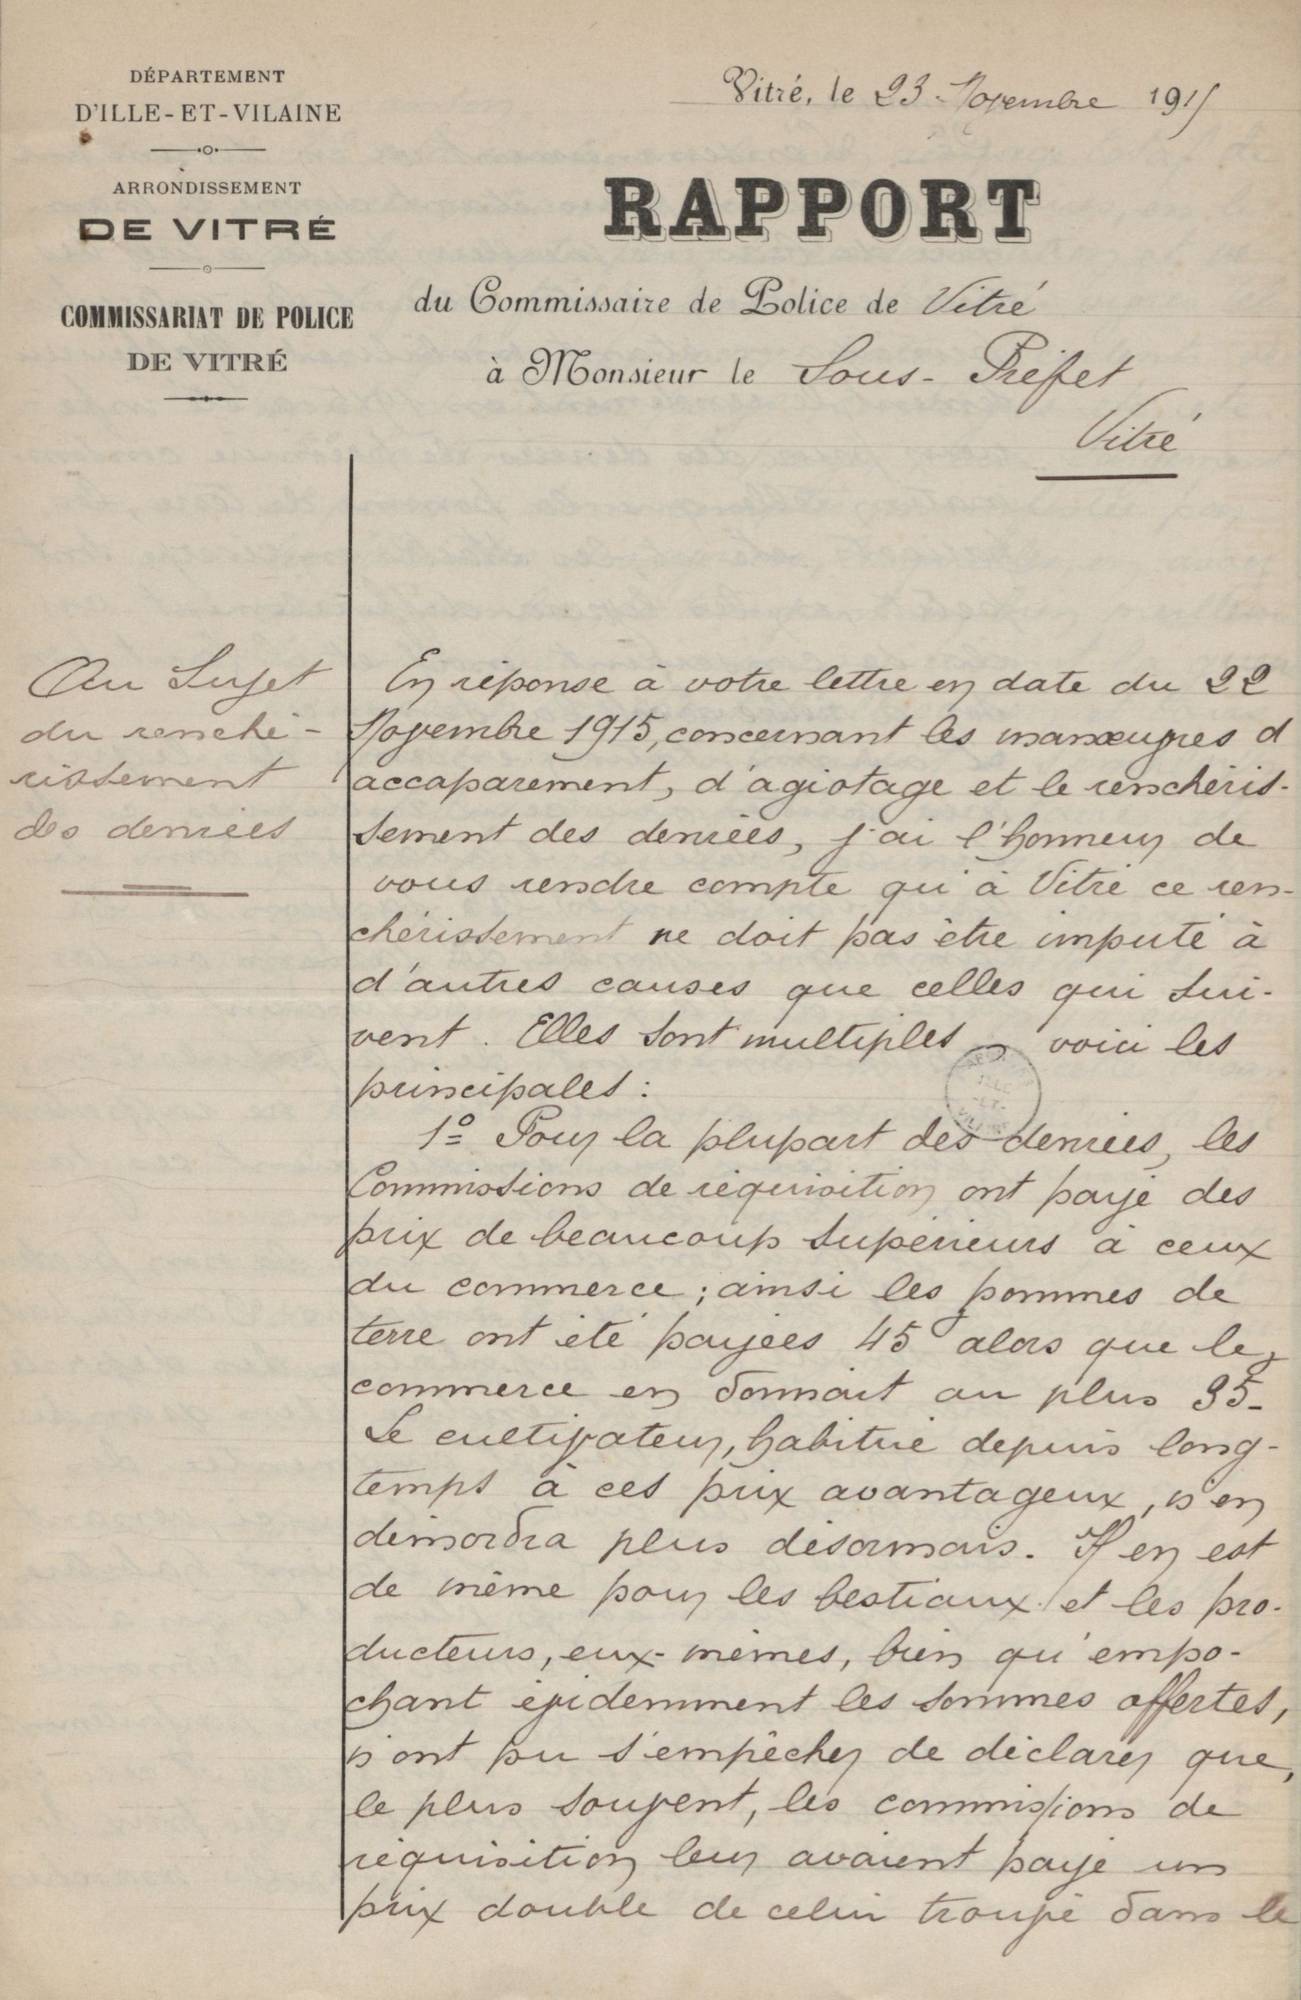 DÉPARTEMENT
D'ILLE-ET-VILAINE
ARRONDISSEMENT
DE VITRÉ
COMMISSARIAT DE POLICE
DE VITRÉ
Vitré, le 23 Novembre 1915
RAPPORT
du Commissaire de Police de Vitré
à Monsieur le Sous-Préfet
Vitré
Au Sujet
du renché-
rissement
des denrées
En réponse à votre lettre en date du 22
Novembre 1915, concernant les manœuvres d
accaparement, d'agiotage et le renchéris-
sement des denrées, j'ai l'honneur de
vous rendre compte qu'à Vitré ce ren-
chérissement ne doit pas être imputé à
d'autres causes que celles qui sui-
vent. Elles sont multiples, voici les
principales :
1º Pour la plupart des denrées, les
Commissions de réquisition ont payé des
prix de beaucoup supérieurs à ceux
du commerce ; ainsi les pommes de
terre ont été payées 45 alors que le
commerce en donnait au plus 35-
Le cultivateur, habitué depuis long-
temps à ces prix avantageux, n'en
démordra plus désormais. Il en est
de même pour les bestiaux et les pro-
ducteurs, eux-mêmes, bien qu'empo-
chant évidemment les sommes offertes,
n'ont pu s'empêcher de déclarer que,
le plus souvent, les commissions de
réquisition leur avaient payé un
prix double de celui trouvé dans le